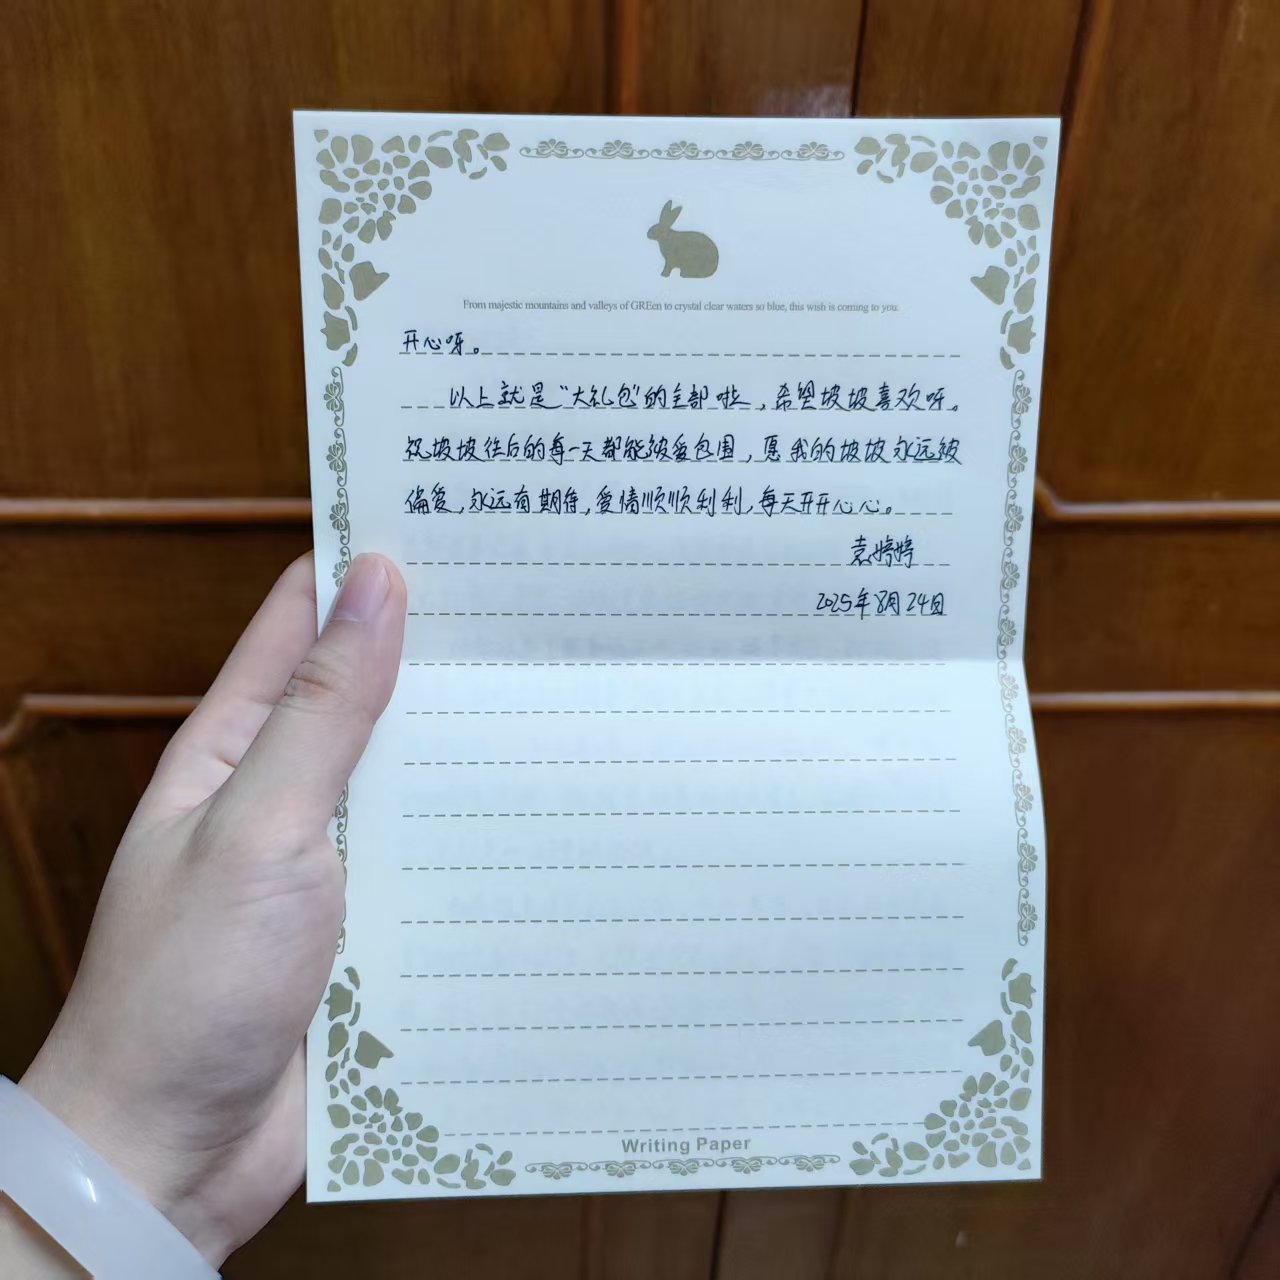 From majestic mountains and valleys of GREen to crystal clear waters so blue, this wish is coming to you.
开心呀。
以上就是“大礼包”的全部啦,希望坡坡喜欢呀。
祝坡坡往后的每一天都能被爱包围,愿我的坡坡永远被
偏爱,永远有期待,爱情顺顺利利,每天开开心心。
袁婷婷
2025年8月24日
Writing Paper